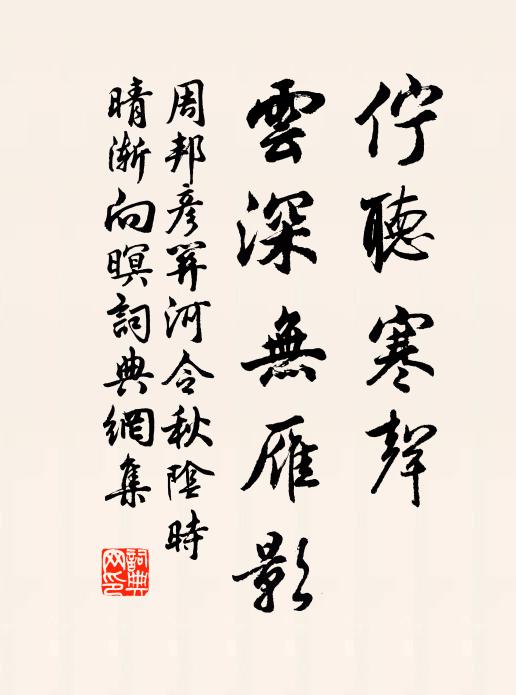 佇聽寒聲
雲深無雁影
周邦彥關河令秋陰時
晴漸向暝詞典網集
詞典網印